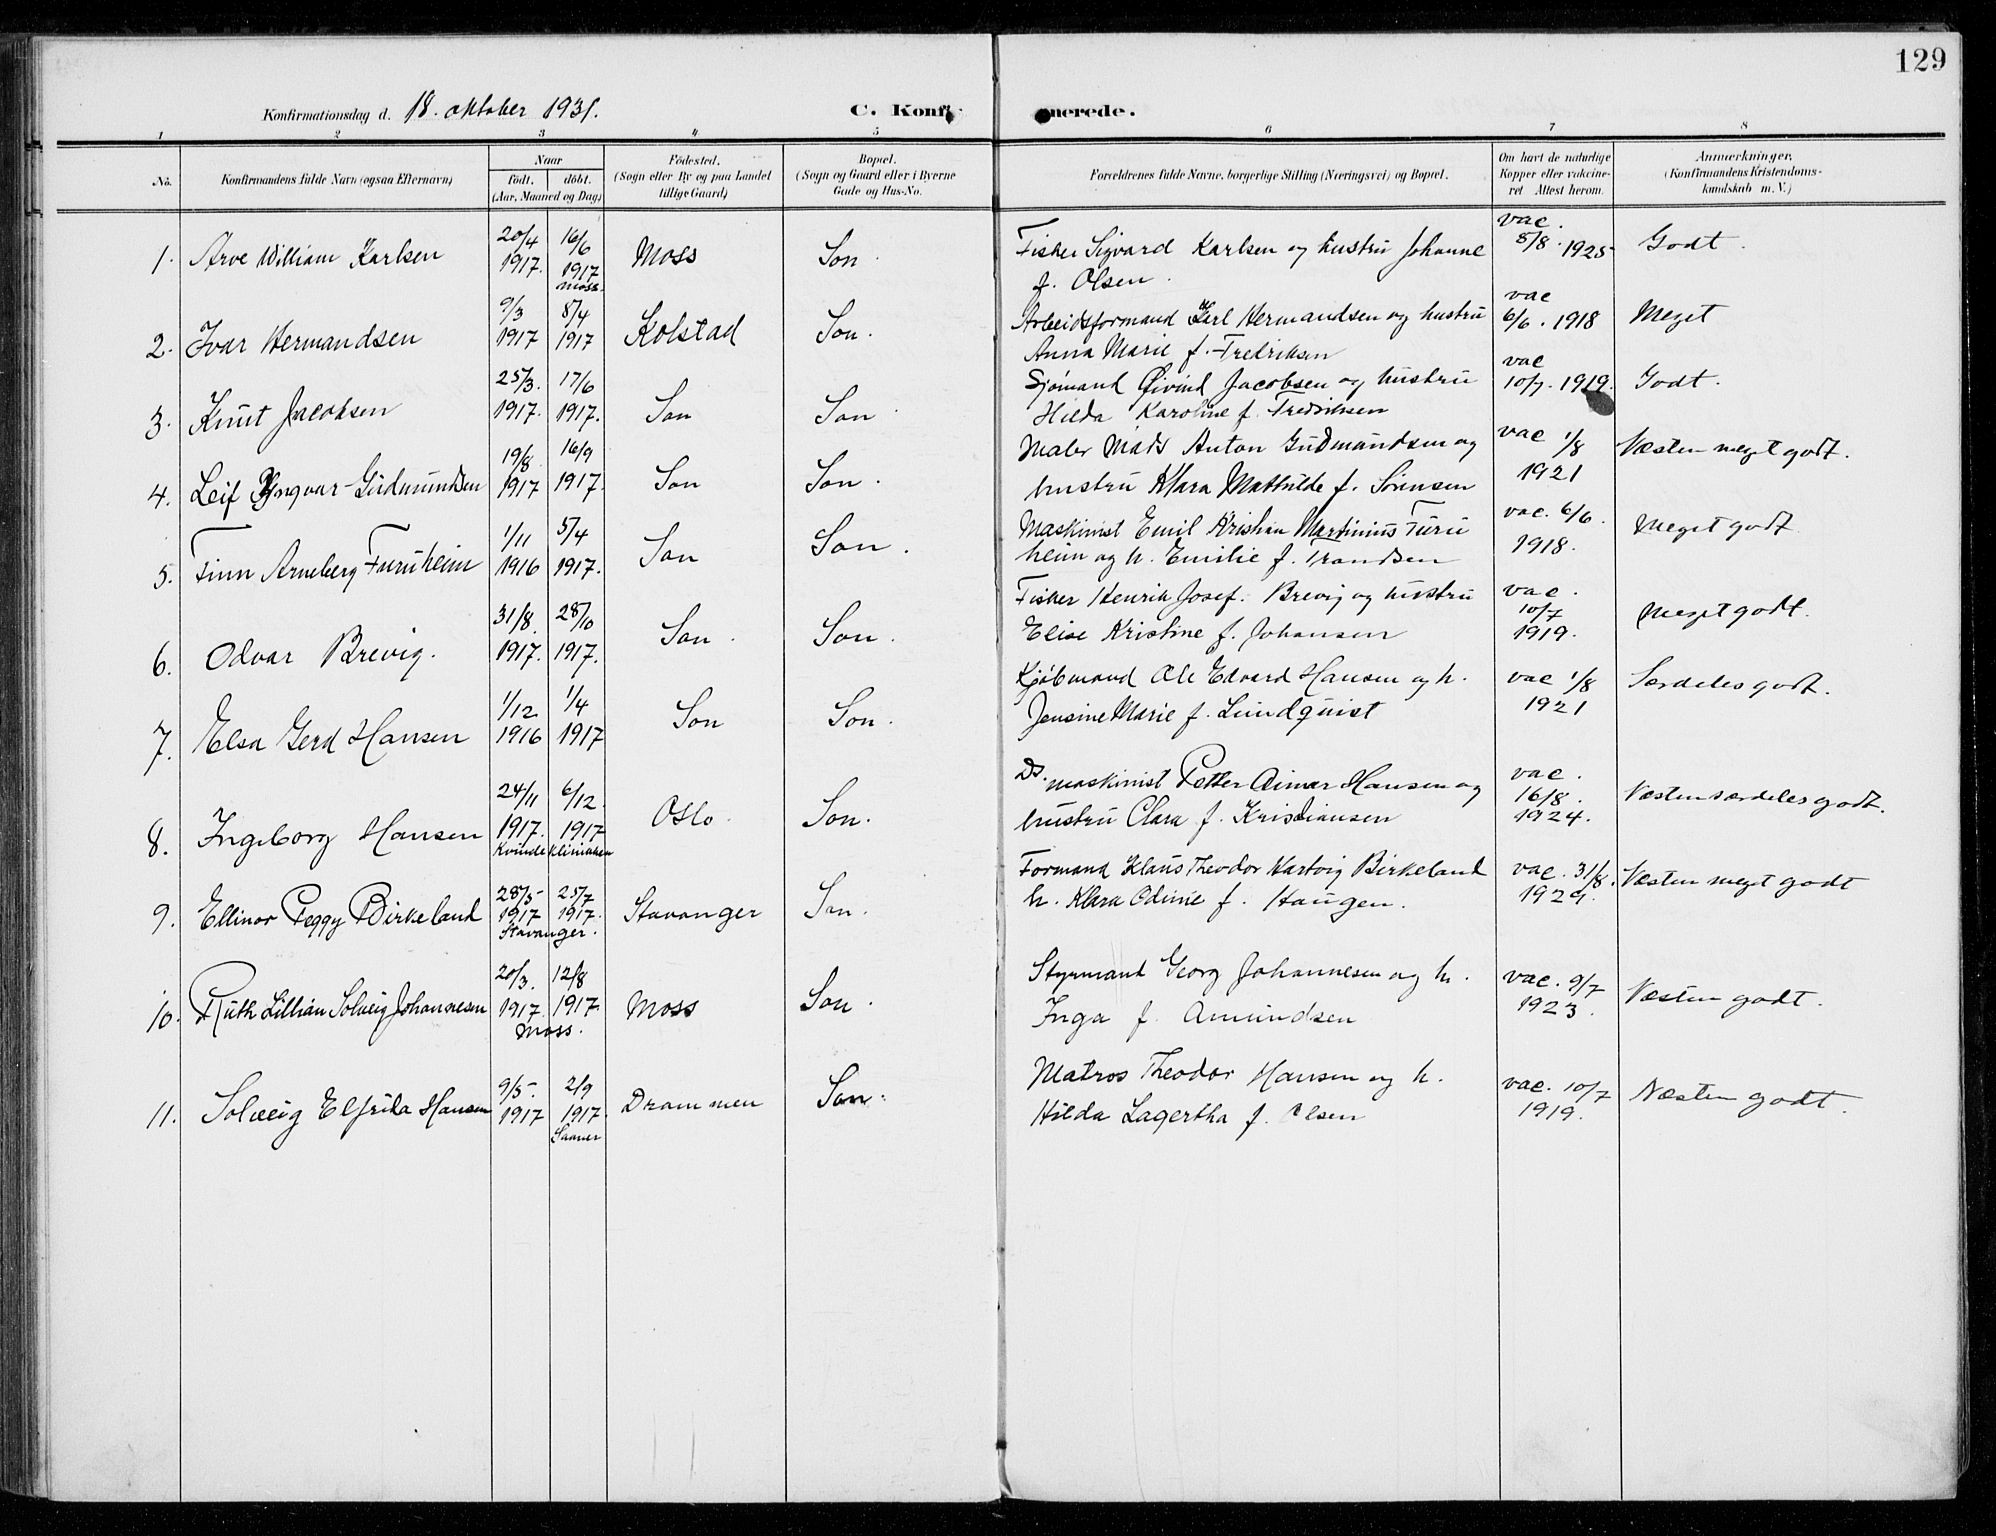 129
Konfirmationsdag d. 18. oktober 1931.
C. Konfi nerede.
1 2 3 4 5 6 7 8
No.
Konfirmandens fulde Navn (ogsaa Efternavn)
Naar
födt. döbt.
(Aar, Maaned og Dag)
Födested.
(Sogn eller By og paa Landet
tillige Gaard)
Bopæl.
(Sogn og Gaard eller i Byerne
Gade og Hus-No.
Forældrenes fulde Navne, borgerlige Stilling (Næringsvei) og Bopæl.
Om havt de naturlige
Kopper eller vakcine-
ret Attest herom.
Anmerkninger,
(Konfirmandens Kristendoms-
kundskab m. V.)
1. Arve William Karlsen 20/4 1917. 16/6 1917 Moss. Moss Son.
Fisker Sigvard Karlsen og hustru Johanne
f. Olsen.
vac. 5/8. 1925 Godt.
2. Ivar Hermandsen 9/3 1917 8/4 1917 Kolstad Son.
Arbeidsformand Karl Hermandsen og hustru
Anna Marie f. Fredriksen
vac 6/6. 1918 Meget
3. Knut Jacobsen 25/3. 1917. 17/6 1917. Son Son
Sjömand Öivind Jacobsen og hustru
Hilda Karoline f. Fredriksen
vac 10/7. 1919. Godt.
4. Leif Yngvar Gudmundsen 19/8. 1917 16/9 1917. Son Son.
Maler Mads Anton Gudmundsen og
hustru Klara Mathilde f. Sörensen
vac 1/8 1921 Næsten meget godt.
5. Finn Arneberg Furuheim 1/11 1916 5/4 1917. Son Son.
Maskinist Emil Kristian Martinius Furu
heim og h. Emilie f. Trandsen
vac. 6/6. 1918. Meget godt
6. Odvar Brevig. 31/8. 1917. 28/10 1917. Son. Son.
Fisker Henrik Josef. Brevig og hustru
Elise Kristine f. Johansen
vac. 10/7 1919. Meget godt.
7. Elsa Gerd Hansen 1/12 1916 1/4 1917 Son Son.
Kjöbmand Ole Edvard Hansen og h.
Jensine Marie f. Lundquist
vac 1/8 1921 Særdeles godt.
8. Ingeborg Hansen 24/11 1917. 6/12. 1917 Kvindeklinikken Oslo. Son.
Ds. maskinist Petter Aimar Hansen og
hustru Clara f. Kristiansen
vac. 16/8. 1924. Næsten særdeles godt.
9. Ellinor Peggy Birkeland 28/5 1917 25/7 1917. Stavanger. Stavanger Son.
Formand Klaus Theodor Hartvig Birkeland
h. Klara Odine f. Haugen.
vac. 31/8. 1929. Næsten meget godt
10. Ruth Lillian Solveig Johannesen 20/3. 1917. 12/8 1917. Moss. Moss Son.
Styrmand Georg Johannesen og h.
Inga f. Amundsen
vac. 9/7 1923. Næsten godt.
11. Solveig Elfrida Hansen 9/5. 1917 2/9 1917. Saaner Drammen Son.
Matros Theodor Hansen og h.
Hilda Lagertha f. Olsen
vac. 10/7 1919. Næsten godt.